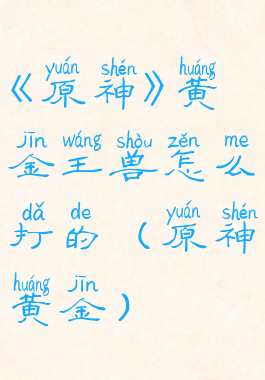 yuán shén huáng
《原神》黄
jīn wáng shòu zěn me
金王兽怎么
dǎ de yuán shén
打的（原神
huáng jīn
黄金）